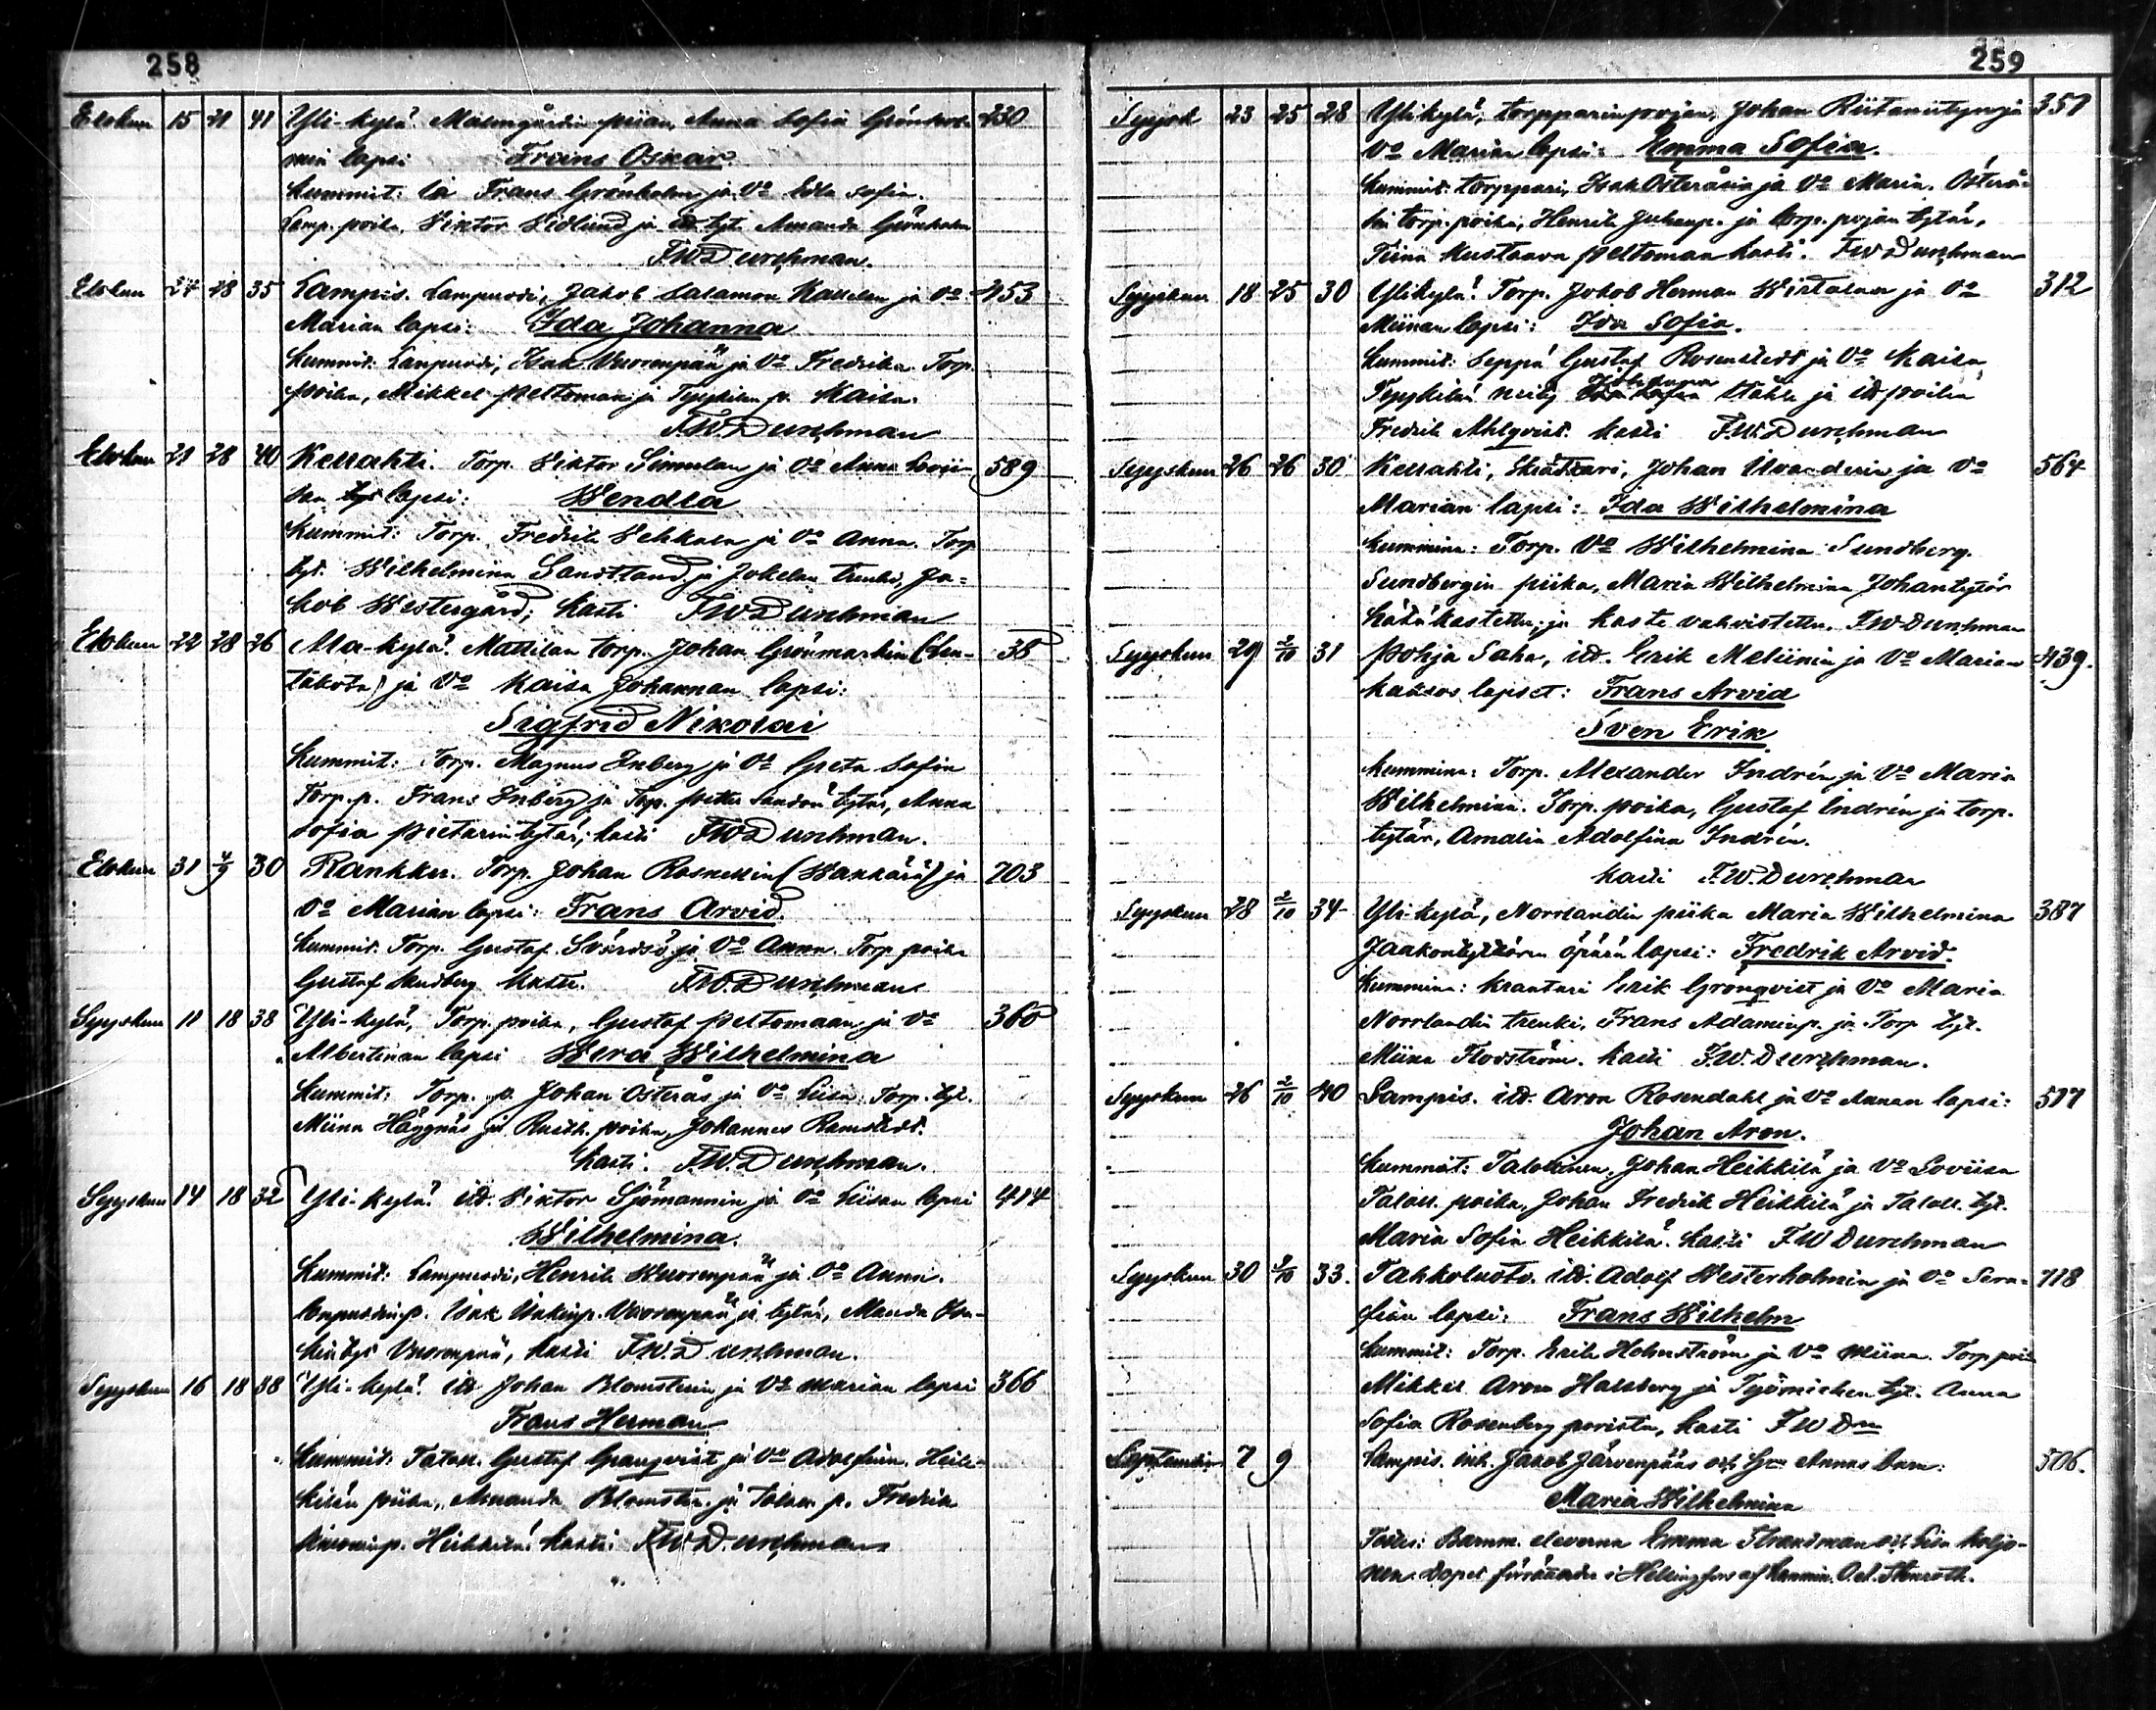 258
Elokuu 15 21 41 Yli-kylä. Malmgårdin piian, Anna Sofia Grönhol- 230
min lapsi Frans Oskar
Kummit: Frans Grönholm ja Vo Edla Sofia.
Lamp. poika, Viktor Sidlund ja tyt. Amanda Grönholm
F.W.Durchman.
Elokuu 24 28 35 Lampis. Lampuodi, Jakob Salamon ja Vo 453
Marian lapsi: Ida Johanna
Kummit: Lampuodi, Isak Vuorenpää ja Vo Fredrika. Torp.
poika, Mikkel Peltoman ja p. Kaisa.
F.W.Durchman
Elokuu 21 28 40 Kellahti. Torp. Viktor Simulan ja Vo Anna Lovii- 589
san lapsi: Wendla
Kummit: Torp. Fredrik Vehkala ja Vo Anna. Torp
tyt. Wilhelmiina Sandstrand ja Jokelan trenki, Ja=
kob Westergård; kasti F.W.Durchman
Elokuu 22 28 26 Ala-kylä. Mattilan torp. Johan Grönmarkin 38
ja Vo Kaisa Johannan lapsi:
Sigfrid Nikolai
Kummit: Torp. Magnus Inberg ja Vo Greta Sofia
Torp. p. Frans Inberg ja Torp. tytär, Anna
Sofia Pietarintytär; kasti F.W.Durchman.
Elokuu 31 4/9 30 Rankku. Torp. Johan Rosnellin ja 703
Vo Marian lapsi: Frans Arvid.
Kummit: Torp. Gustaf Svärdsö ja Vo Anna. Torp poika
Gustaf Sandberg kasti. F.W.Durchman
Syyskuu 11 18 38 Yli-kylä, Torp. poika, Gustaf Peltomaan ja Vo 360
Albertinan lapsi Wera Wilhelmina
Kummit: Torp. p. Johan Österås ja Vo Liisa. Torp. tyt.
Miina Häggnäs ja Rusth. poika, Johannes Ramstedt.
kasti. F.W.Durchman.
Syyskuu 14 18 32 Yli-kylä. itk. Viktor Sjömannin ja Vo Liisan lapsi 414
Wilhelmina.
Kummit: Lampuodi, Henrik Vuorenpää ja Vo Anna.
Lampuodin p. Isak Isakinp. Vuorenpää ja tytär, Manda Isa-
kintyt Vuorenpää, kasti F.W.Durchman.
Syyskuu 16 18 38 Yli-kylä. itk Johan Blomstenin ja Vo Marian lapsi 366
Frans Herman
Kummit: Talon. Gustaf Granqvist ja Vo Adolfiina. Heik-
kilän piika, Amanda Blomsten. ja Talon p. Fredrik
Heikkilä! kasti: F.W.Durchman
259
Syysk 23 25 28 Ylikylä, torpparinpojan, Johan ja 357
Vo Marian lapsi: Emma Sofia.
Kummit: torppari, Isak Österåsin ja Vo Maria. Österå=
sin torp. poika, Henrik Juhanp. ja torp. pojan tytär,
Fiina Kustaava Peltoman kasti. F.W.Durchman
Syyskuu 18 25 30 Ylikylä. Torp. Jakob Herman Wirtasen ja Vo 312
Miinan lapsi: Ida Sofia.
Kummit: Seppä Gustaf Rosenstedt ja Vo Kaisa,
neity Johanna Ståhle ja itk poika
Fredrik Ahlqvist. kasti F.W.Durchman
Syyskuu 26 26 30 Kellahti, Skräätäri, Johan ja Vo 564
Marian lapsi: Ida Wilhelmina
Kummina: Torp. Vo Wilhelmina Sundberg.
Sundbergin piika, Maria Wilhelmina Johantytär
hätäkastettu ja kaste vahvistettu. F.W.Durchman
Syyskuu 29 2/10 31 Pohja Saha, itk. Erik Meliinin ja Vo Marian 439.
kaksos lapset: Frans Arvid
Sven Erik
Kummina: Torp. Alexander Indrén ja Vo Maria
Wilhelmina. Torp. poika, Gustaf Indrén ja torp.
tytär, Amalia Adolfina Indrén.
kasti F.W.Durchman
Syyskuu 28 2/10 34 Yli-kylä, Norrlandin piika Maria Wilhelmina 387
Jaakontyttären äpärä lapsi: Fredrik Arvid.
Kummina: Erik Grönqvist ja Vo Maria
Norrlandin trenki, Frans Adaminp. ja Torp tyt.
Miina Flodström. kasti F.W.Durchman.
Syyskuu 26 2/10 40 Lampis. itk. Aron Rosendahl ja Vo Annan lapsi: 577
Johan Aron.
Kummit: Talollinen, Johan Heikkilä ja Vo Loviisa
Taloll. poika, Johan Fredrik Heikkilä ja Taloll. tyt.
Maria Sofia Heikkilä. kasti F.W.Durchman
Syyskuu 30 9/10 33. Tahkoluoto. itk. Adolf Westerholmin ja Vo Sera- 718
fiian lapsi: Frans Wilhelm
Kummit: Torp. Erik Holmström ja Vo Miina. Torp poik
Mikkel Aron Hallberg ja Työmiehen tyt. Anna
Sofia Rosenberg porista, kasti F W Dm
Septembr 7 9 Lampis. inh. Jakob Järvenpääs och Hu Annas barn: 506.
Maria Wilhelmina
Test.: Barnm. eleverna Emma Strandman och Lisa Koljo-
nen. Döpet förrättades i Helsingfors af